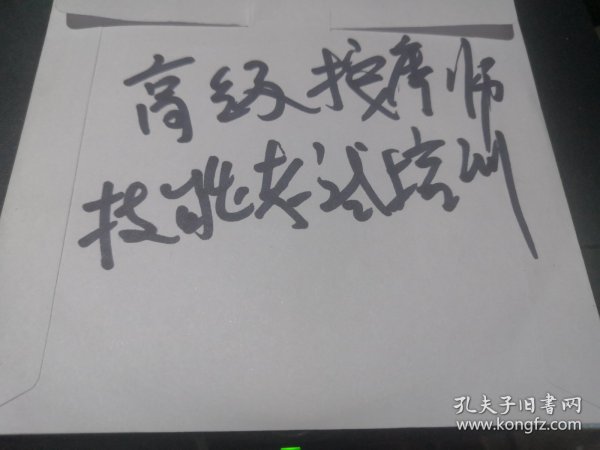 高级按摩师
技能考试培训
孔夫子旧书网
www.kongfz.com